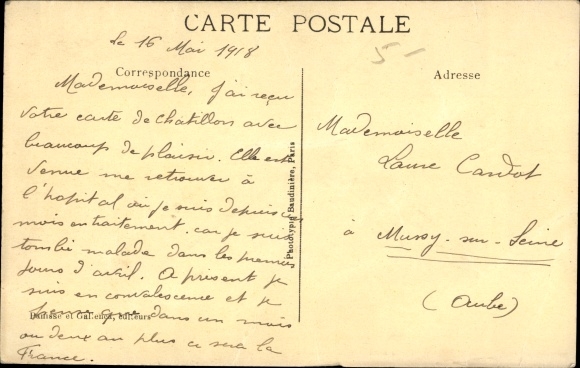 CARTE POSTALE
5-
le 16 Mai 1918
Correspondance
Mademoiselle, J'ai reçu
votre carte de Chatillon avec
beaucoup de plaisir. Elle est
venue me retrouver à
l'hopital où je suis depuis un
mois en traitement. car je suis
tombé malade dans les premiers
jours d'avril. A présent je
suis en convalescence et je
que dans un mois
ou deux au plus ce sera la
France.
Damisse et editeurs
Phototypie Baudinière, Paris
Adresse
Mademoiselle
Laure Cardot
à Mussy-sur-Seine
(Aube)